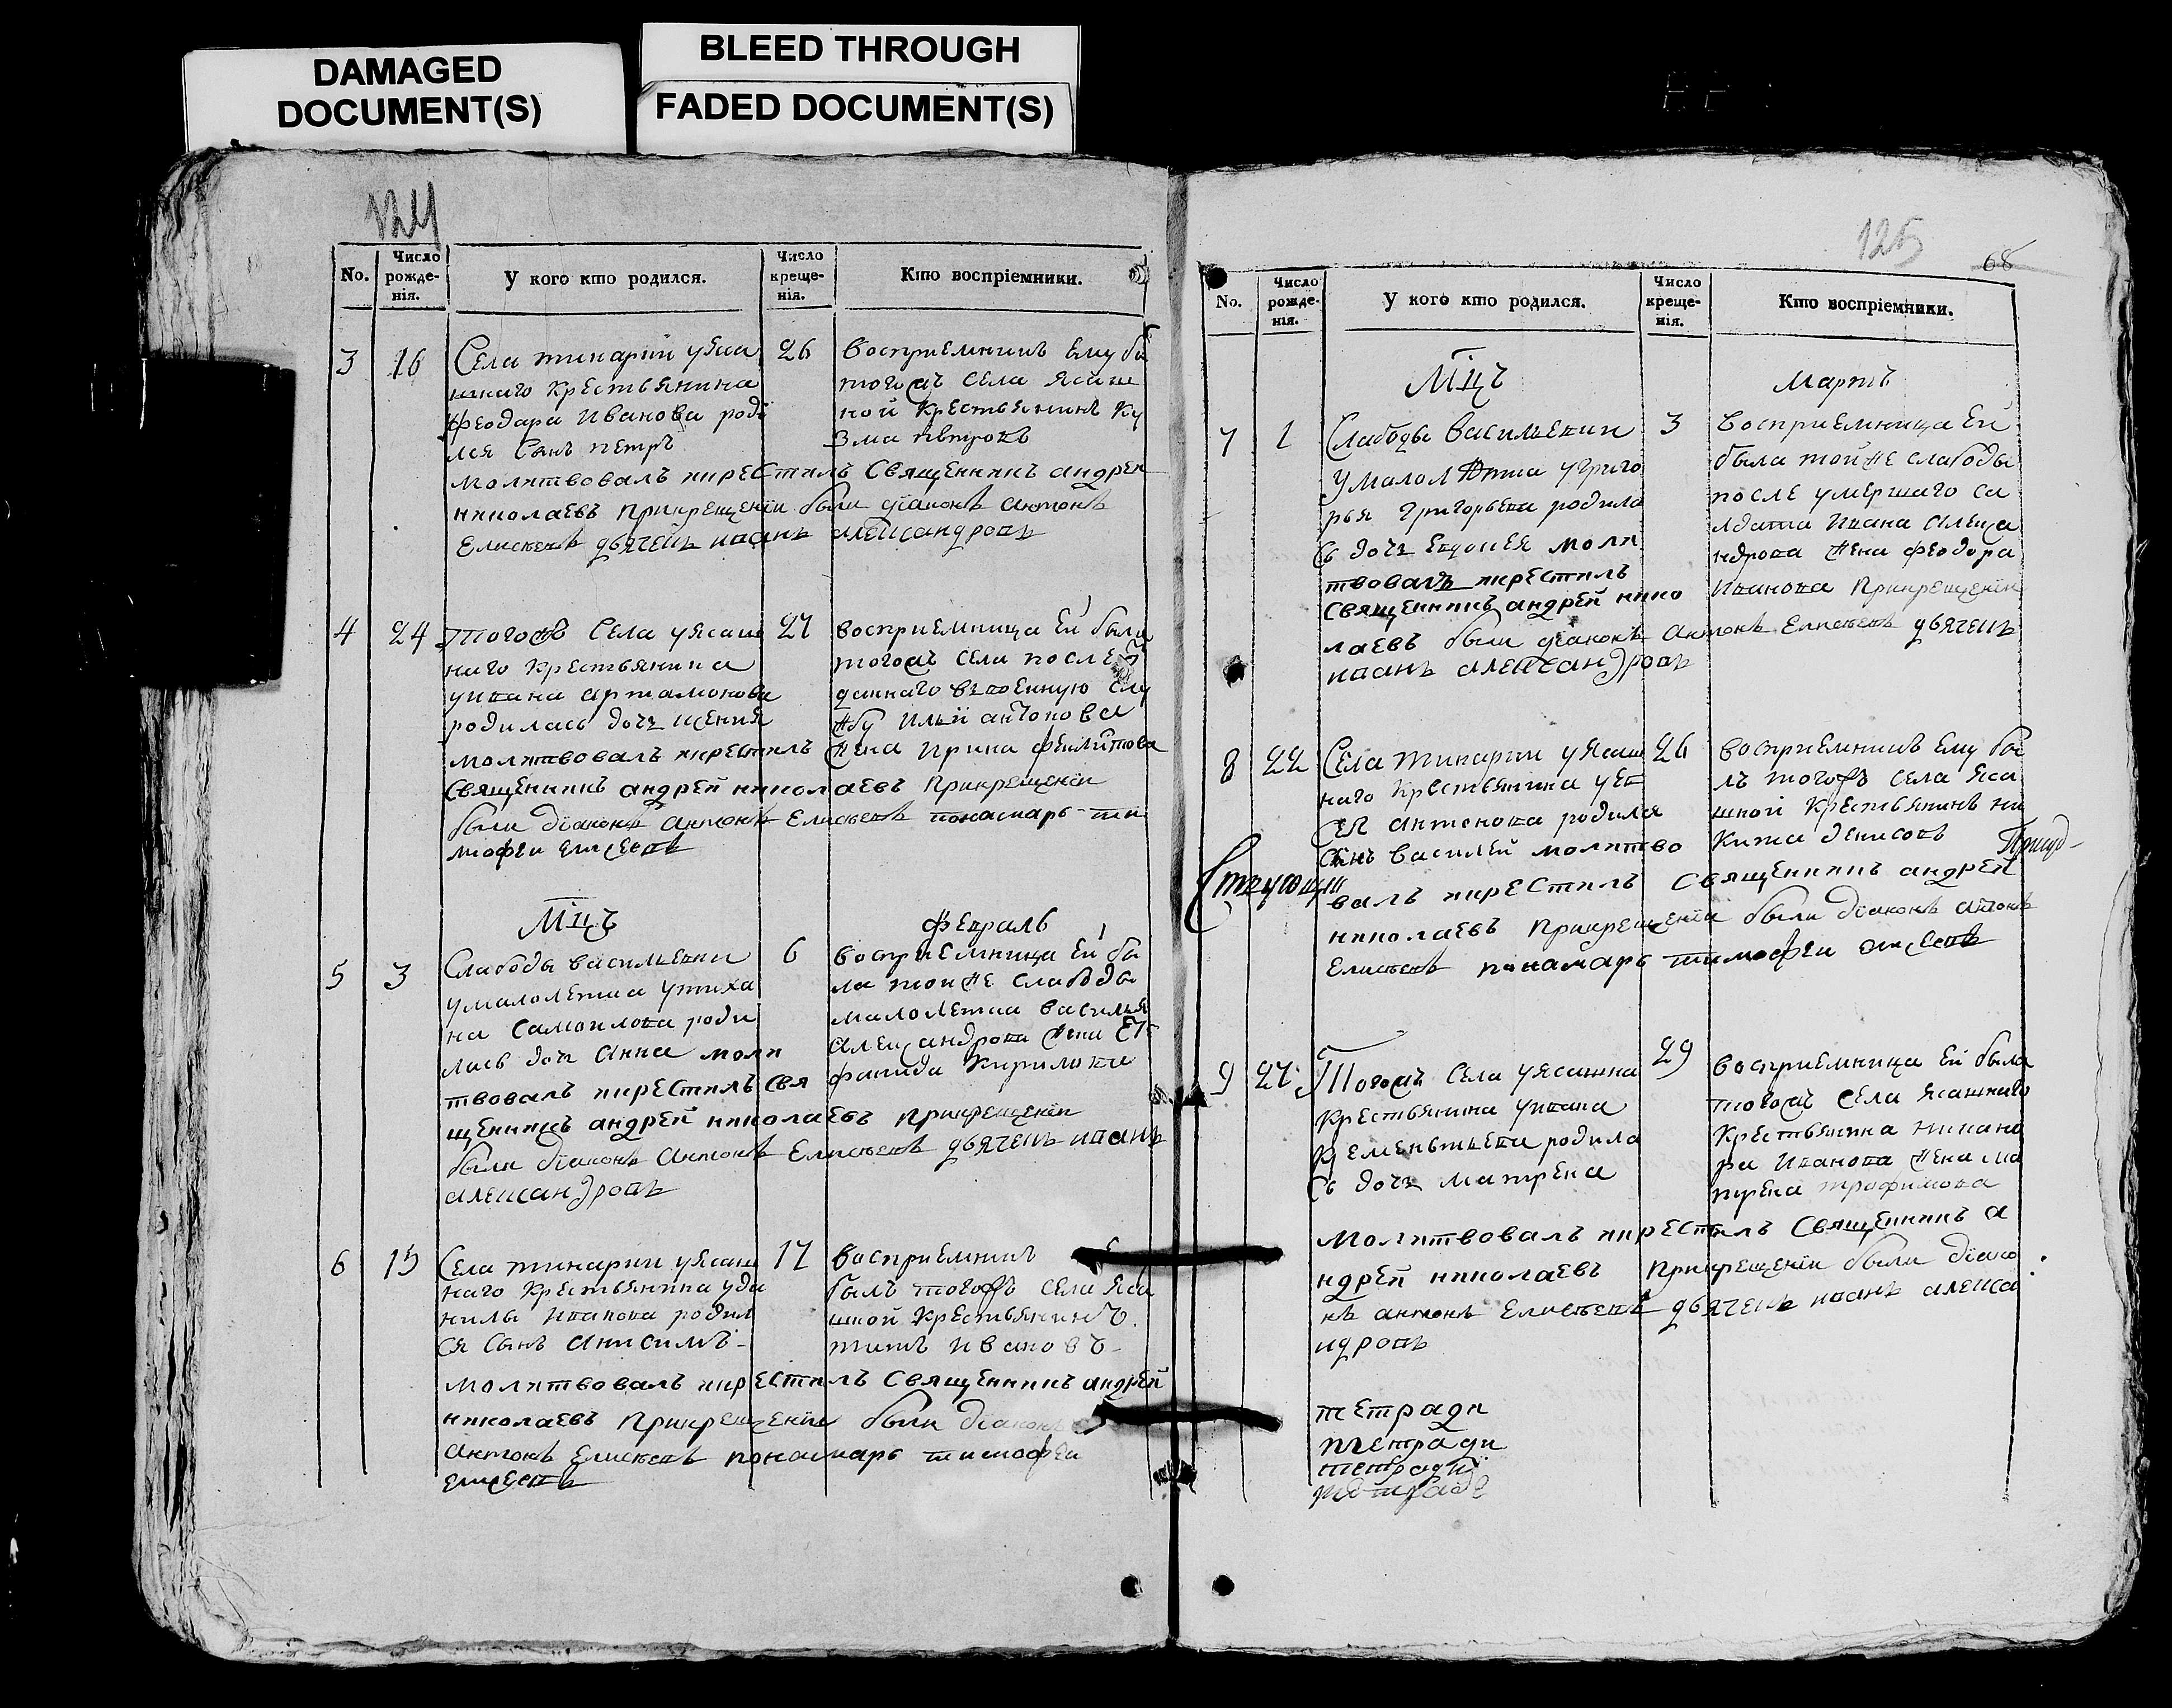 DAMAGED
DOCUMENT(S)
BLEED THROUGH
FADED DOCUMENT(S)
124
No.
Число рожде- нія.
У кого кто родился.
Число креще- нія.
Кто воспріемники.
3
16
Села тинарии уяса
шнаго крестьянина
феодара Иванова роди
лся Сынъ петръ
26
восприемникъ ему бы
тогожъ села ясаш
ной крестьянинъ ку
зма петровъ
молитвовалъ икрестилъ Священникъ андреи
николаевъ прикрещении были діаконъ антонъ
Елисеевъ дьячекъ иванъ александровъ
4
24
тогожъ Села уясаш
наго крестьянина
уивана артамонова
родилась дочь ксения
27
восприемница ей была
тогожъ села после
даннаго ввоенную слу
жбу ильи антонова
жена ирина филитова
молитвовалъ икрестилъ
Священникъ андрей николаевъ прикрещении
были діаконъ антонъ Елисеевъ понамарь ти
мофеи
Мцъ
февраль
5
3
Слабоды васильевки
умалолетка утиха
на самоилова роди
лась дочь анна моли
6
восприемница ей бы
ла тойже слабоды
малолетка василья
александрова жена
кирилова
твовалъ икрестилъ свя
щенникъ андрей николаевъ прикрещении
были діаконъ антонъ Елисеевъ дьячекъ иванъ
александровъ
6
15
Села тинарии уясаш
наго крестьянина уда
нилы иванова родил
ся сынъ анисимъ
17
восприемникъ
былъ тогожъ села яса
шной крестьянинъ
титъ ивановъ
молитвовалъ икрестилъ священникъ андрей
николаевъ прикрещении были діаконъ
антонъ Елисеевъ понамарь тимофеи
125
68
No.
Число рожде- нія.
У кого кто родился.
Число креще- нія.
Кто воспріемники.
Мцъ
мартъ
7
1
Слабоды васильевки
умалолетка угриго
рья григорьева родила
сь дочь евдокея моли
твовалъ икрестилъ
священникъ андрей нико
3
восприемница ей
была тойже слабоды
после умершаго са
лдата ивана алекса
ндрова жена феодора
иванова прикрещении
лаевъ были діаконъ антонъ Елисеевъ дьячекъ
иванъ александровъ
8
22
Села тинарии уясаш
наго крестьянина уев
сея антонова родился
сынъ василей молитво
26
восприемникъ ему бы
лъ тогожъ села яса
шной крестьянинъ ни
кита денисовъ
валъ икрестилъ священникъ андрей
николаевъ прикрещении были діаконъ антонъ
Елисеевъ понамарь тимофеи
9
27
тогожъ Села уясашна
крестьянина уивана
родила
сь дочь матрена
29
восприемница ей была
тогожъ села ясашнаго
крестьянина никано
ра иванова жена ма
трена трофимова
молитвовалъ икрестилъ Священникъ а
ндрей николаевъ прикрещении были діако
нъ антонъ Елисеевъ дьячекъ иванъ алекса
ндровъ
тетради
тетради
тетради